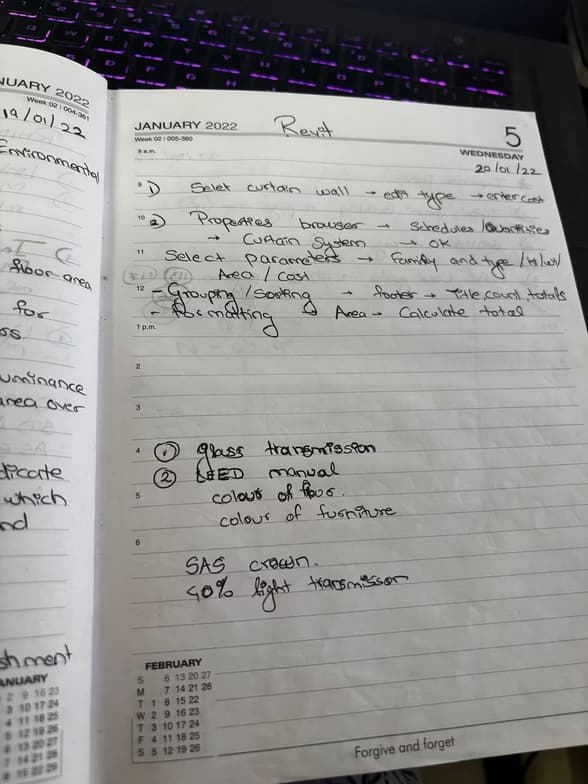 NUARY 2022
Week 02 | 004-361
19/01/22
Environmental
floor area
for
ss
uminance
area over
dicate
which
nd
shment
ANUARY
2 9 16 23
3 10 17 24
4 11 18 25
5 12 19 26
6 13 20 27
7 14 21 28
8 15 22 29
JANUARY 2022 Revit 5
Week 02 | 005-360 WEDNESDAY
8 a.m. 20/01/22
9 1) Selet curtain wall → edit type → enter cost
10 2) Properties browser → Schedules / Quantities
→ Curtain System → OK
11 Select parameters → Family and type /
Area / Cost
12 - Grouping / Sorting → footer → Title, count, totals
- Formatting ↳ Area → Calculate total
1 p.m.
2
3
4 ① glass transmission
② LEED manual
5 colour of floor.
colour of furniture
6
SAS crown.
40% light transmission
FEBRUARY
S 6 13 20 27
M 7 14 21 28
T 1 8 15 22
W 2 9 16 23
T 3 10 17 24
F 4 11 18 25
S 5 12 19 26
Forgive and forget